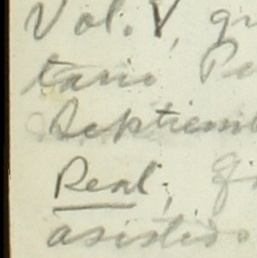 Vol. V, qu
tario Pe
Septiemb
Real; fi
asistió